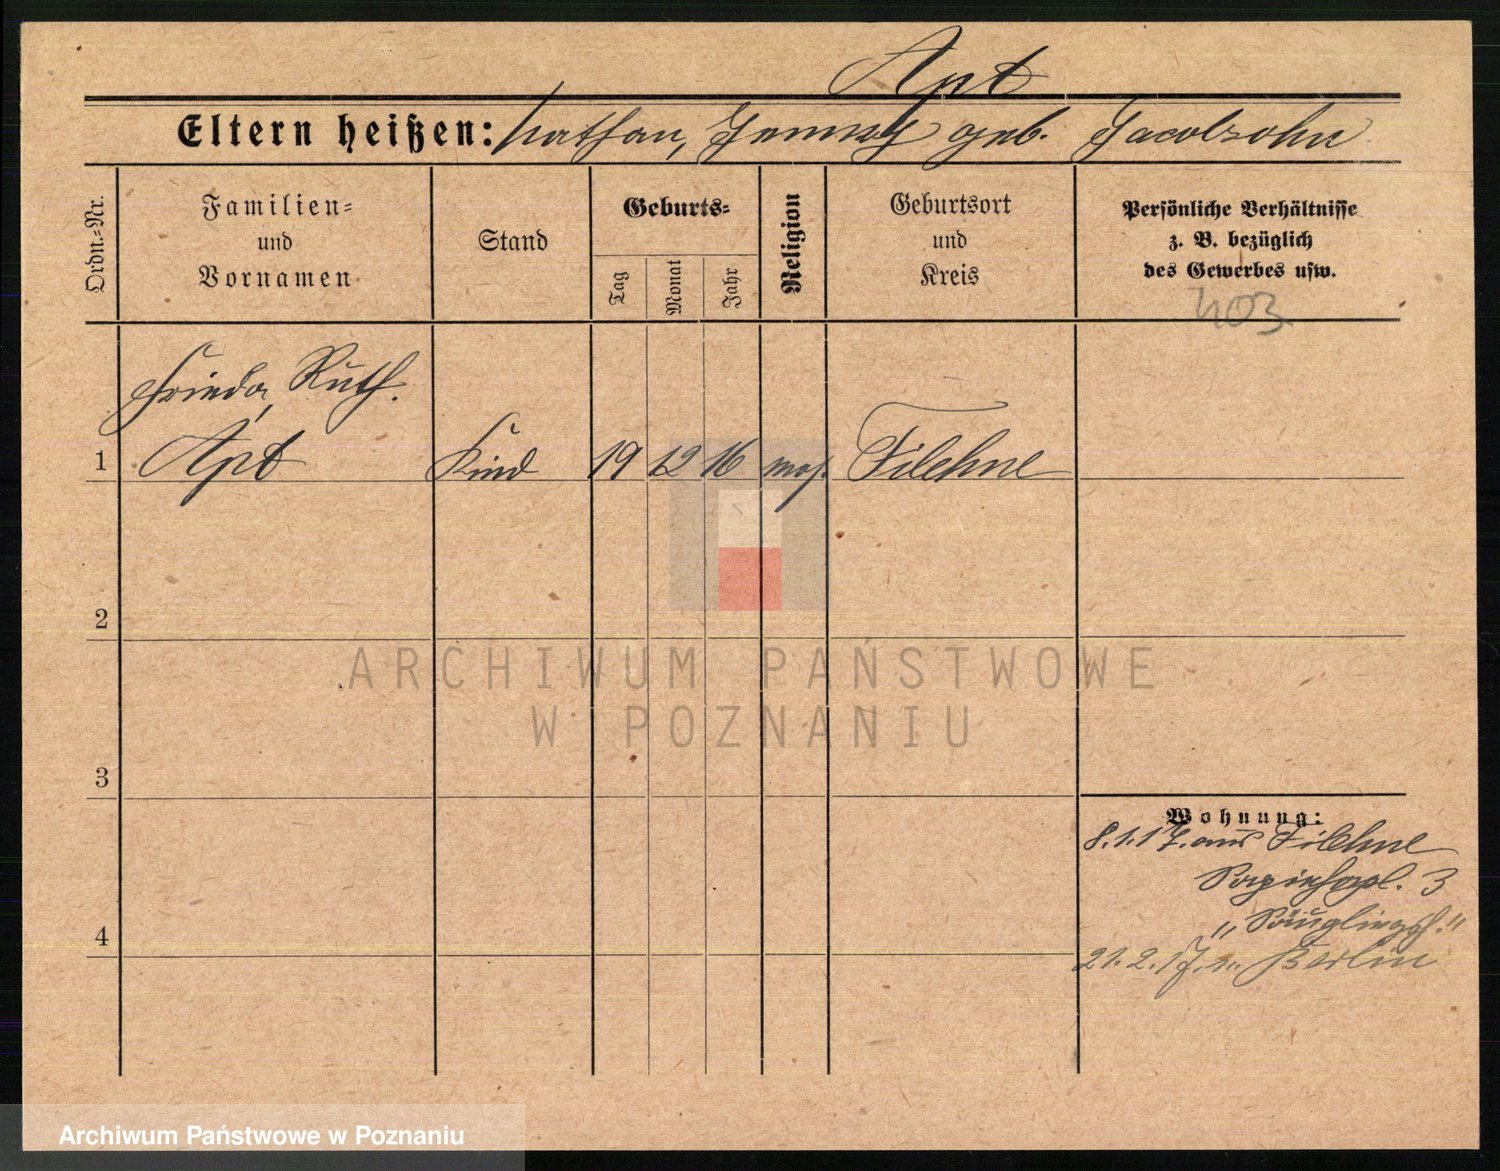 Apt
Eltern heißen: Nathan, Jenny geb. Jacobsohn
Ordn.=Nr.
Familien=
und
Vornamen
Stand
Geburts=
Tag
Monat
Jahr
Religion
Geburtsort
und
Kreis
Persönliche Verhältnisse
z. B. bezüglich
des Gewerbes usw.
403
Frieda, Ruth.
1 Apt Kind 19 12 16 mos. Filehne
2
ARCHIWUM PAŃSTWOWE
W POZNANIU
3
Wohnung:
8.1.17. aus Filehne
3
„Säuglingsh.“
4
21.2.17. n. Berlin
Archiwum Państwowe w Poznaniu